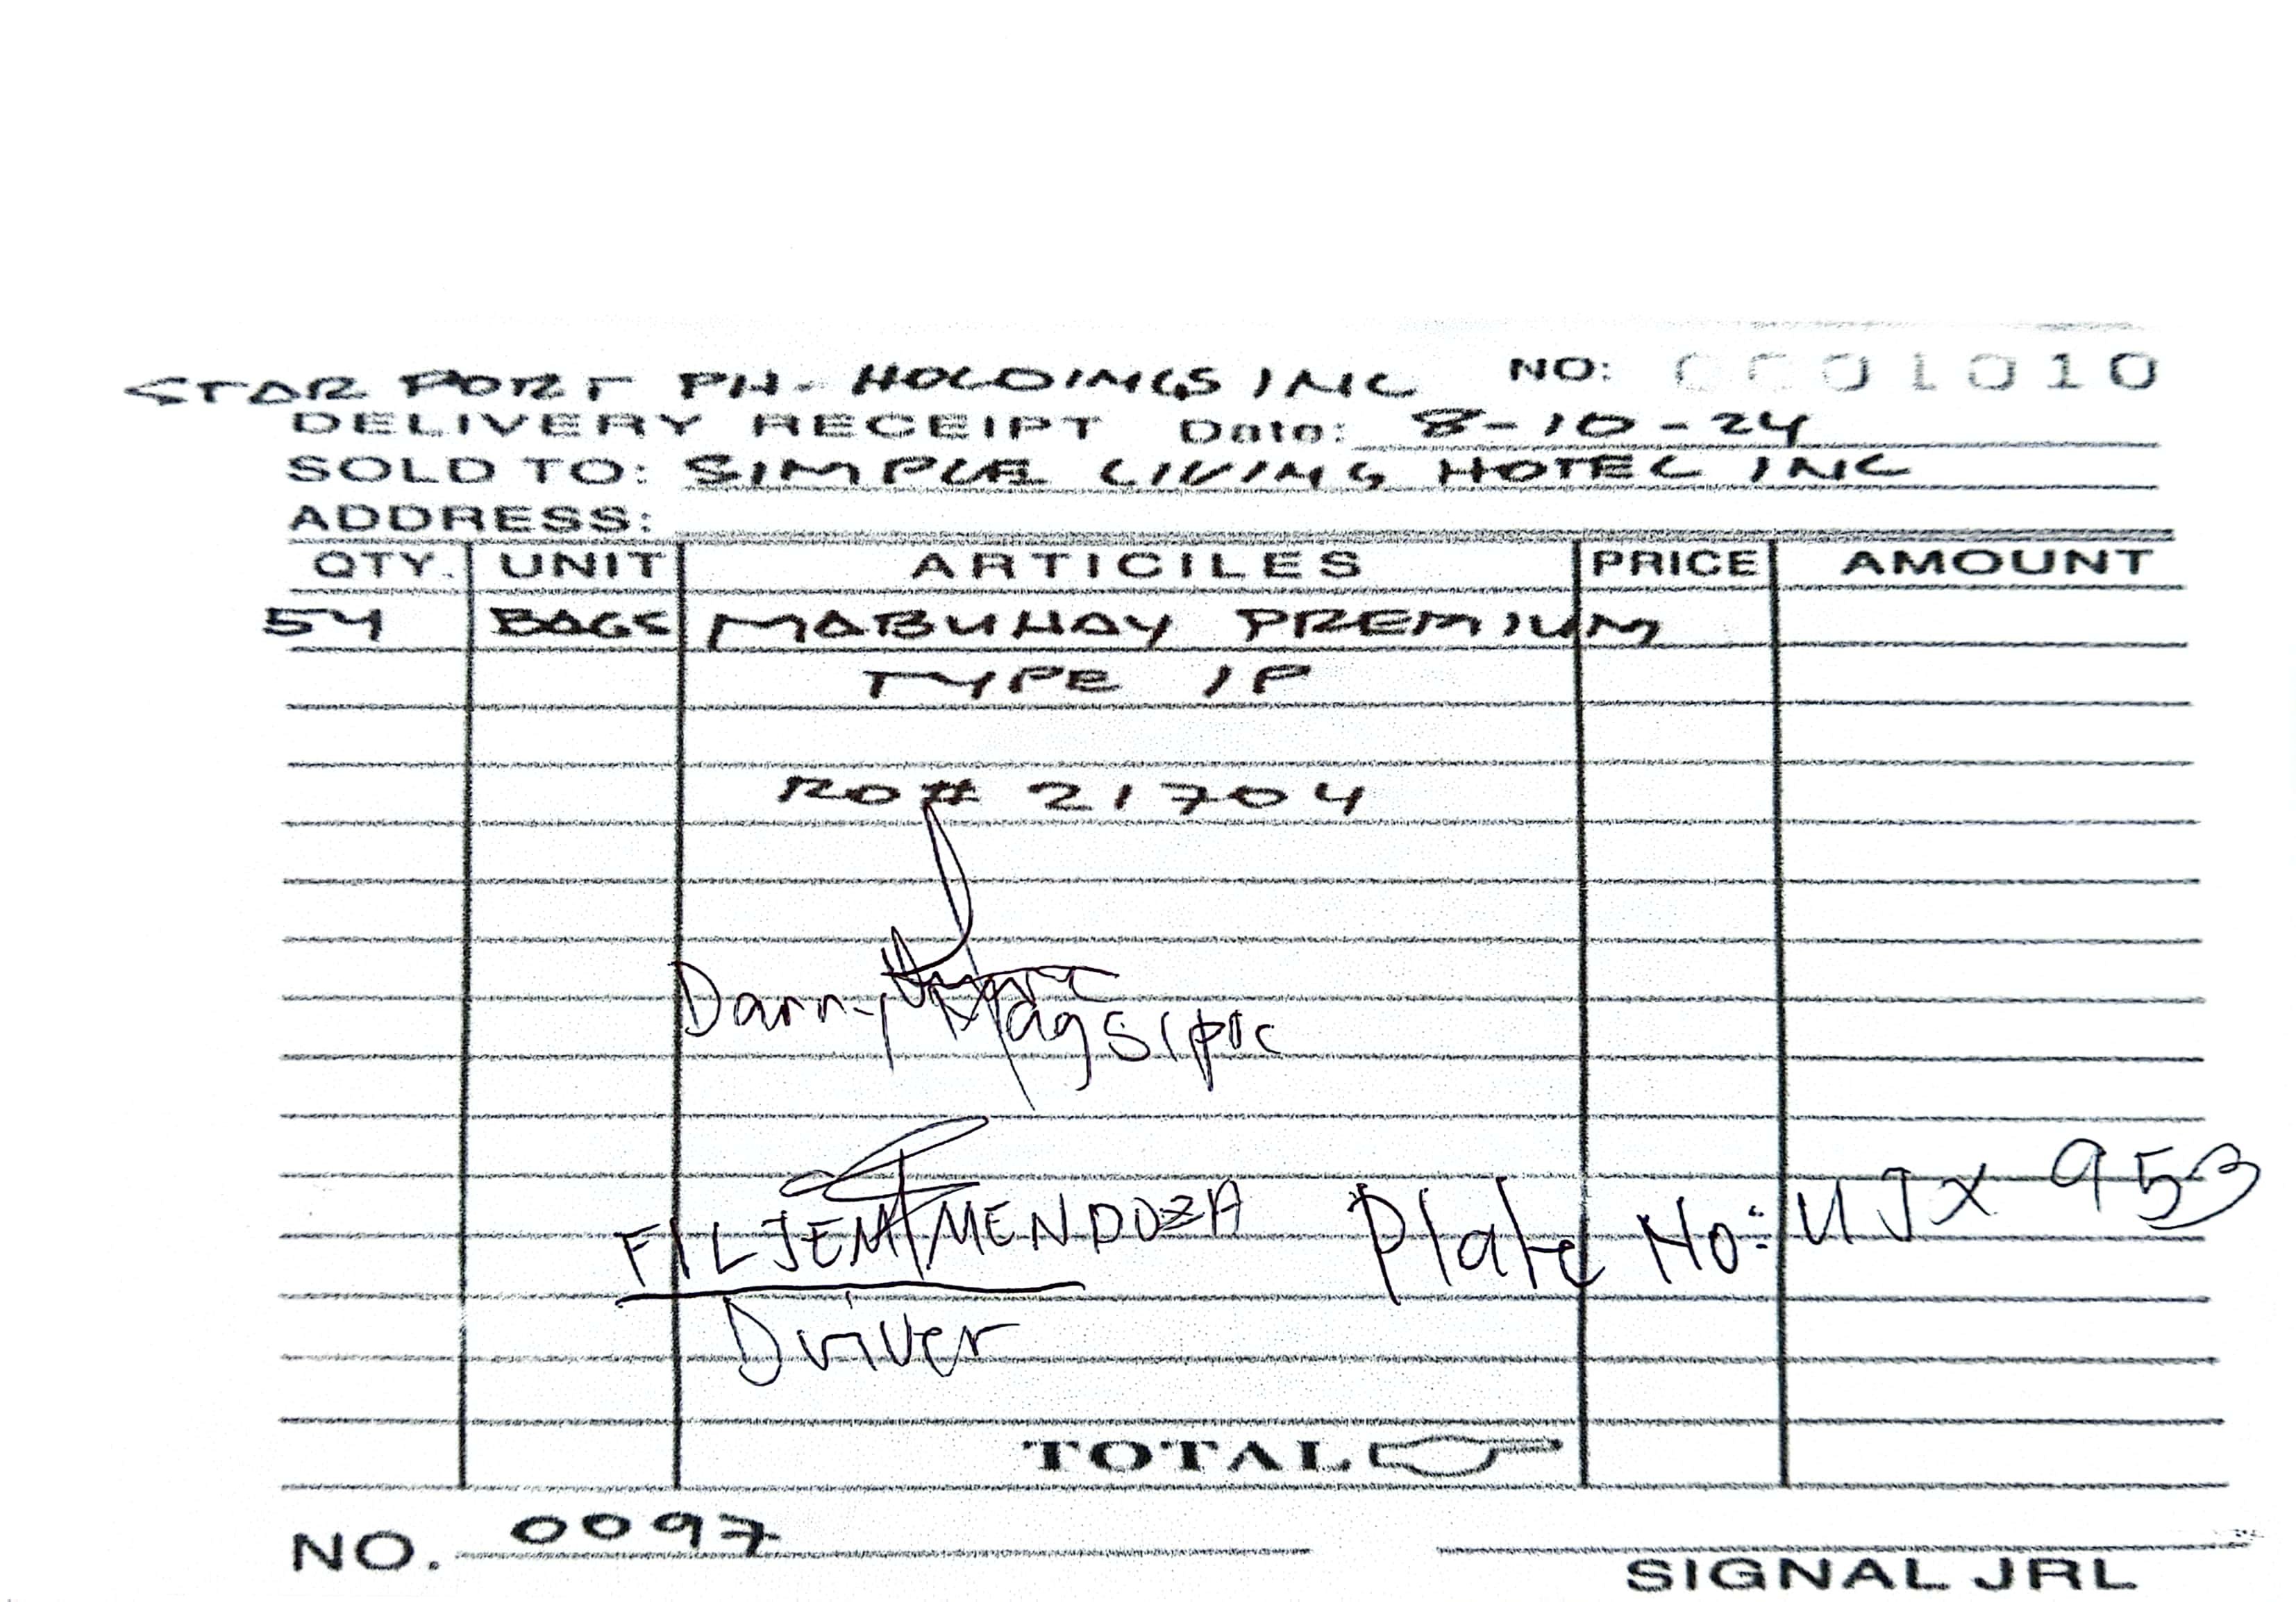 STAR PORT PH. HOLDINGS INC NO: 0001010
DELIVERY RECEIPT Date: 8-10-24
SOLD TO: SIMPLE LIVING HOTEL INC
ADDRESS:
QTY. UNIT ARTICILES PRICE AMOUNT
54 BAGS MABUHAY PREMIUM
TYPE 1P
RO# 21704
Danny
FILJEM MENDOZA Plate No: UJX 953
Driver
TOTAL
NO. 0097
SIGNAL JRL